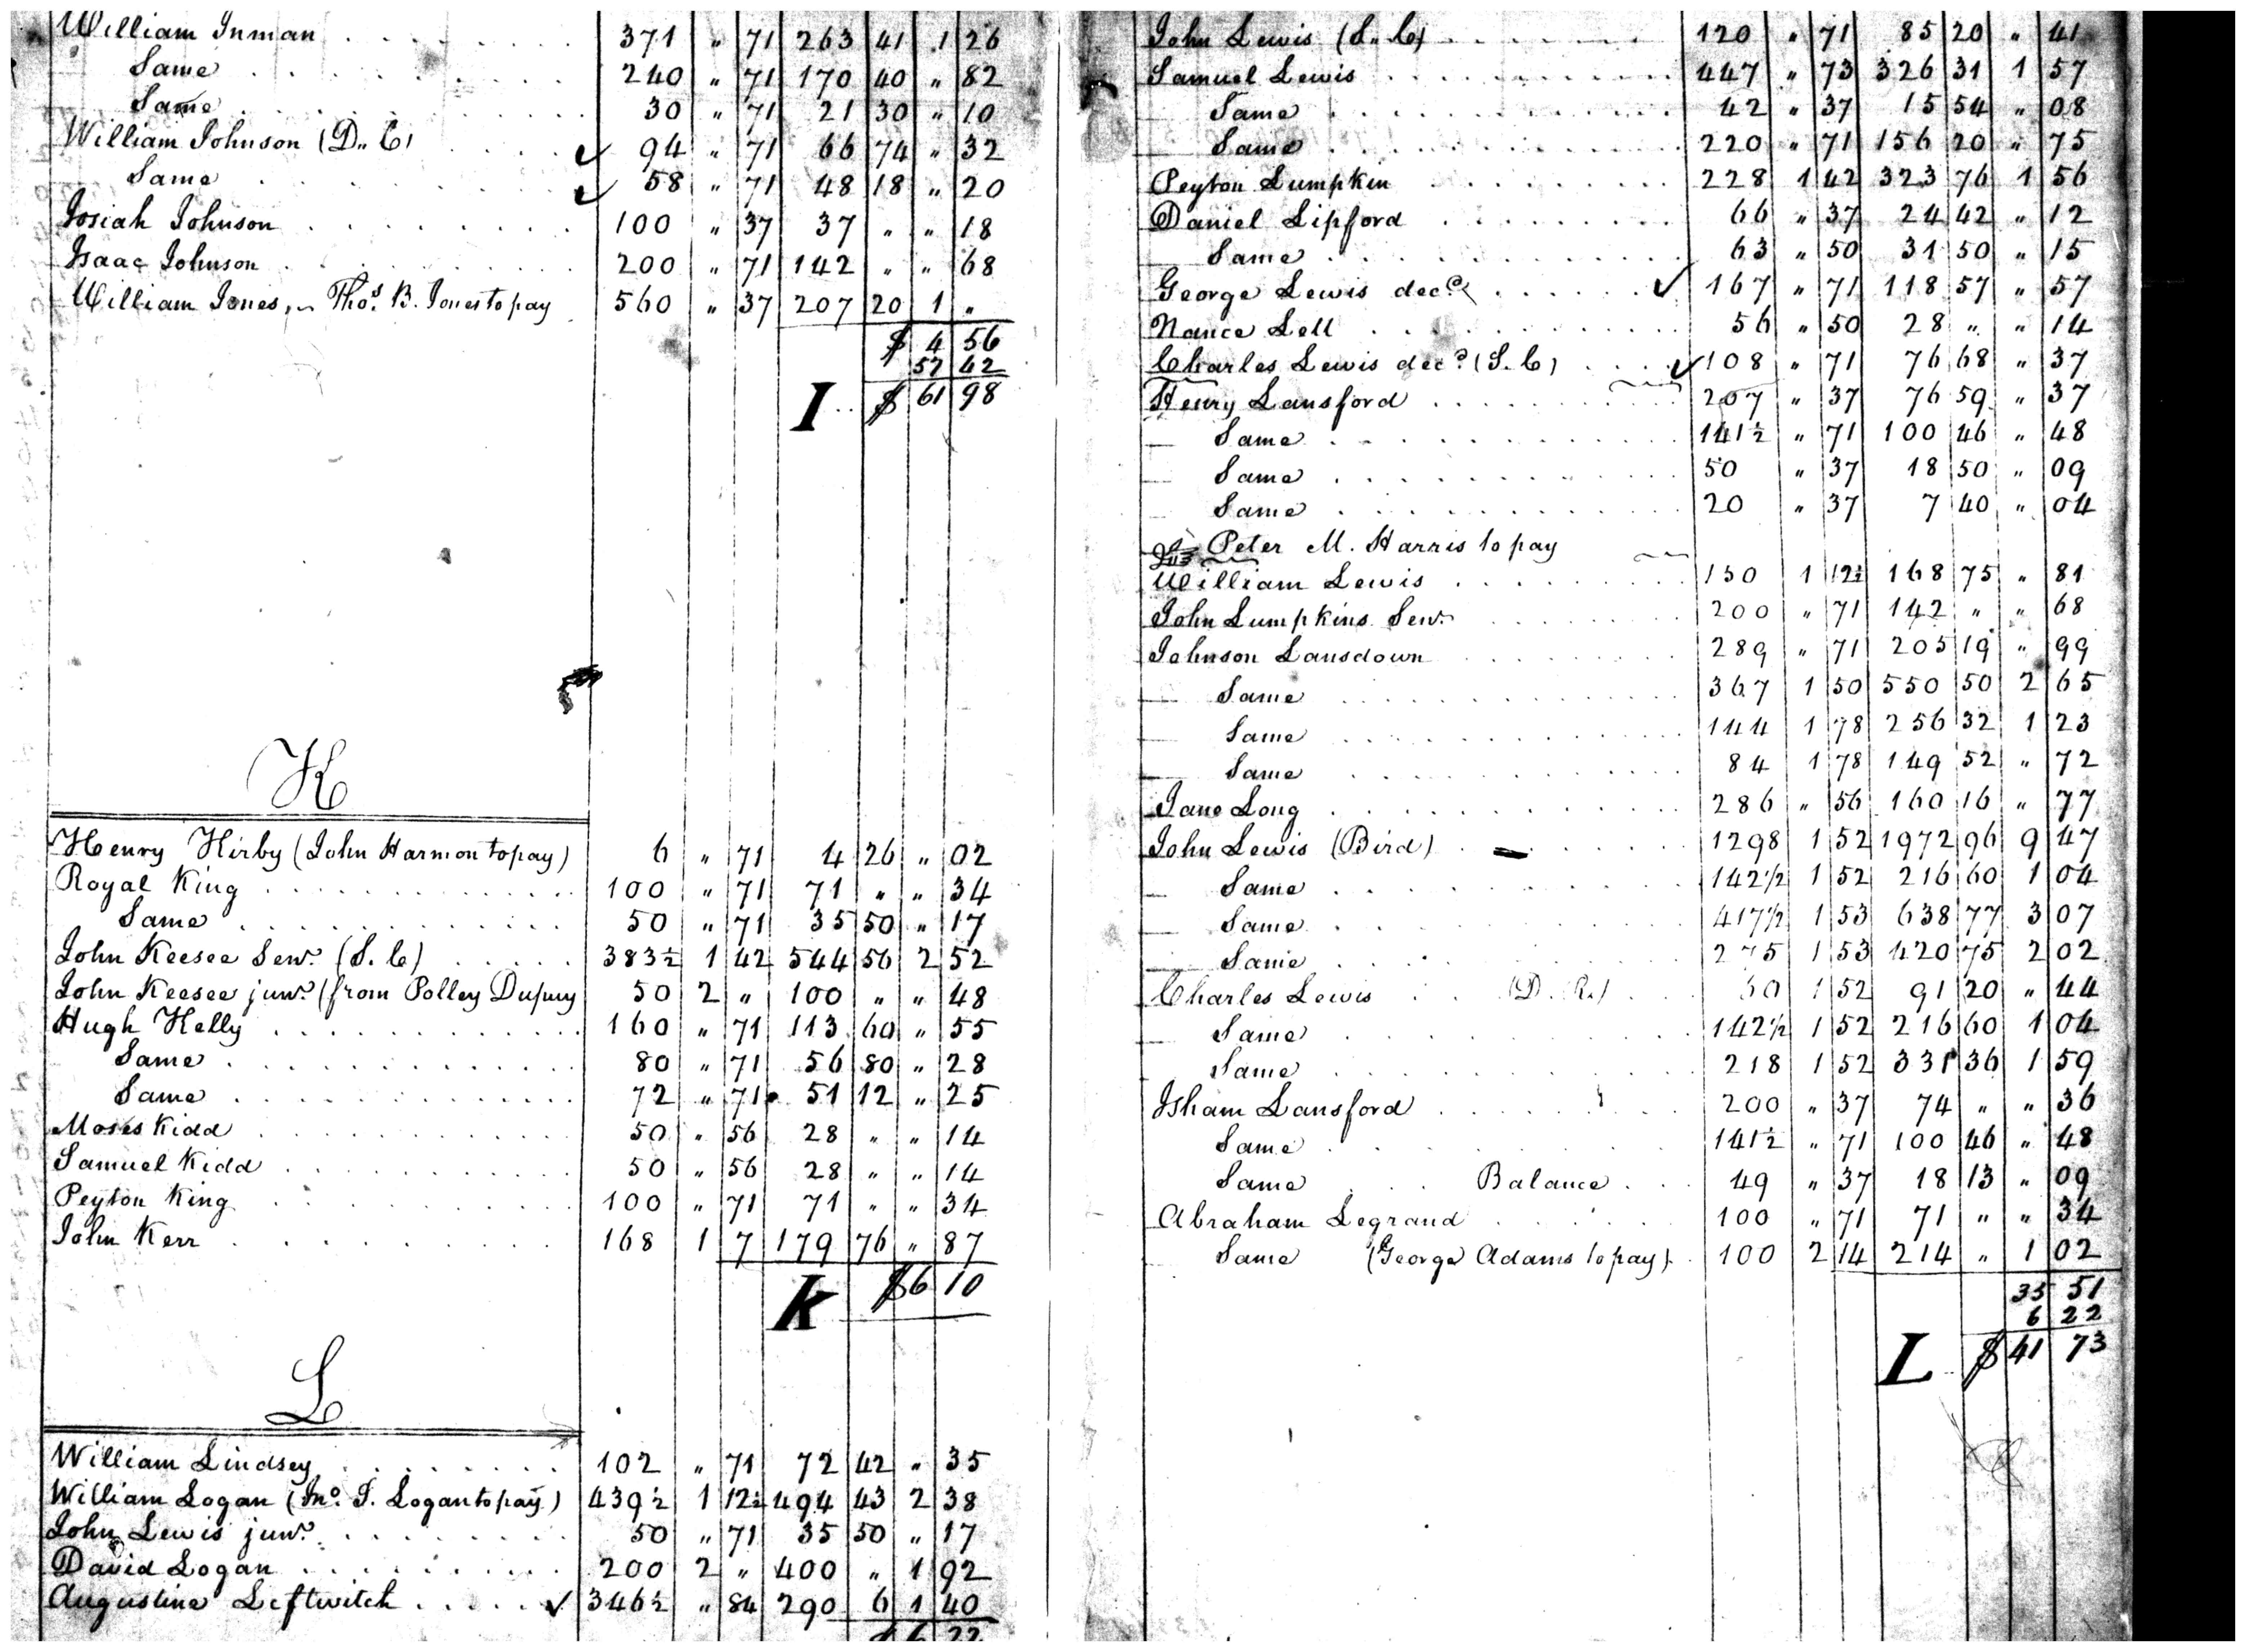 William Inman . . . . . . . 371 " 71 263 41 1 26
Same . . . . . . . . . 240 " 71 170 40 " 82
Same . . . . . . . . . 30 " 71 21 30 " 10
William Johnson (D. C) . . . . ✓ 94 " 71 66 74 " 32
Same . . . . . . . . ✓ 58 " 71 48 18 " 20
Josiah Johnson . . . . . . . . 100 " 37 37 " " 18
Isaac Johnson . . . . . . . . 200 " 71 142 " " 68
William Jones, Thos. B. Jones to pay 560 " 37 207 20 1 "
$ 4 56
57 42
I $ 61 98
K
Henry Kirby (John Harmon to pay) 6 " 71 4 26 " 02
Royal King . . . . . . . . 100 " 71 71 " " 34
Same . . . . . . . . 50 " 71 35 50 " 17
John Keesee Senr. (S. C) . . . . 383½ 1 42 544 56 2 52
John Keesee junr. (from Polley Dupuy 50 2 " 100 " " 48
Hugh Kelly . . . . . . . . 160 " 71 113 60 " 55
Same . . . . . . . . 80 " 71 56 80 " 28
Same . . . . . . . . 72 " 71 51 12 " 25
Moses Kidd . . . . . . . . 50 " 56 28 " " 14
Samuel Kidd . . . . . . . . 50 " 56 28 " " 14
Peyton King . . . . . . . . 100 " 71 71 " " 34
John Kerr . . . . . . . . 168 1 7 179 76 " 87
K $6 10
L
William Lindsey . . . . . . . 102 " 71 72 42 " 35
William Logan (Jno. T. Logan to pay) 439½ 1 12½ 494 43 2 38
John Lewis junr. . . . . . . . 50 " 71 35 50 " 17
David Logan . . . . . . . . 200 2 " 400 " 1 92
Augustine Leftwitch . . . . . ✓ 346½ " 84 290 6 1 40
$ 6 22
John Lewis (S. C) . . . . . . 120 " 71 85 20 " 41
Samuel Lewis . . . . . . . . 447 " 73 326 31 1 57
Same . . . . . . . . 42 " 37 15 54 " 08
Same . . . . . . . . 220 " 71 156 20 " 75
Peyton Lumpkin . . . . . . . 228 1 42 323 76 1 56
Daniel Lipford . . . . . . . 66 " 37 24 42 " 12
Same . . . . . . . . 63 " 50 31 50 " 15
George Lewis decd. . . . . . ✓ 167 " 71 118 57 " 57
Nance Lell . . . . . . . . 56 " 50 28 " " 14
Charles Lewis decd. (S. C) . . . ✓ 108 " 71 76 68 " 37
Henry Lansford . . . . . . . 207 " 37 76 59 " 37
Same . . . . . . . . 141½ " 71 100 46 " 48
Same . . . . . . . . 50 " 37 18 50 " 09
Same . . . . . . . . 20 " 37 7 40 " 04
Peter M. Harris to pay
William Lewis . . . . . . . 150 1 12½ 168 75 " 81
John Lumpkins Senr. . . . . . 200 " 71 142 " " 68
Johnson Lansdown . . . . . . 289 " 71 205 19 " 99
Same . . . . . . . . 367 1 50 550 50 2 65
Same . . . . . . . . 144 1 78 256 32 1 23
Same . . . . . . . . 84 1 78 149 52 " 72
Jane Long . . . . . . . . 286 " 56 160 16 " 77
John Lewis (Bird) . . . . . . 1298 1 52 1972 96 9 47
Same . . . . . . . . 142½ 1 52 216 60 1 04
Same . . . . . . . . 417½ 1 53 638 77 3 07
Same . . . . . . . . 275 1 53 420 75 2 02
Charles Lewis . . (D. R.) . 60 1 52 91 20 " 44
Same . . . . . . . . 142½ 1 52 216 60 1 04
Same . . . . . . . . 218 1 52 331 36 1 59
Isham Lansford . . . . . . . 200 " 37 74 " " 36
Same . . . . . . . . 141½ " 71 100 46 " 48
Same . . . Balance . . 49 " 37 18 13 " 09
Abraham Legrand . . . . . . 100 " 71 71 " " 34
Same (George Adams to pay) . 100 2 14 214 " 1 02
35 51
6 22
L $ 41 73